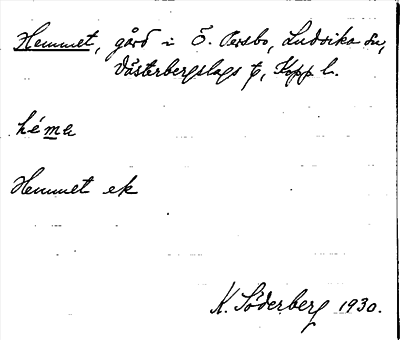 Hemmet, gård i Ö. Persbo, Ludvika sn,
Västerbergslags t, Kopp l.
héma
Hemmet ek
K. Söderberg 1930.